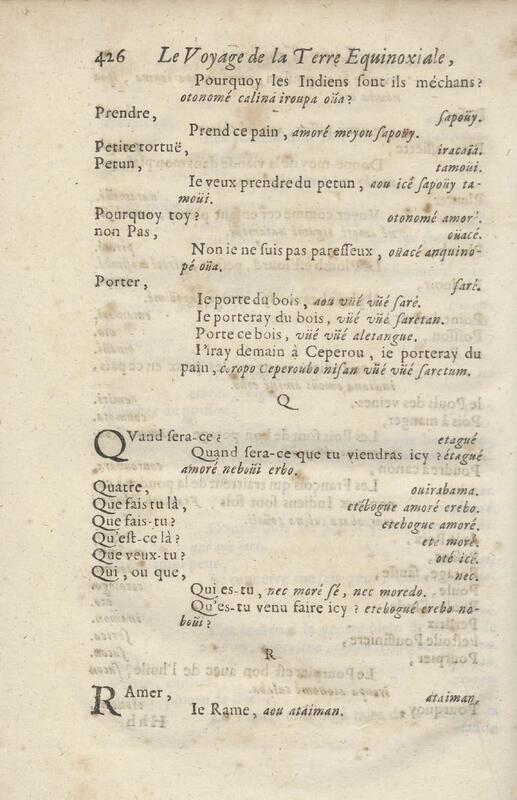 426 Le Voyage de la Terre Equinoxiale,
Pourquoy les Indiens ſont ils méchans?
otonomé calina iroupa oüa?
Prendre, ſapoüy.
Prend ce pain, amoré meyou ſapoüy.
Petite tortuë, iracaii.
Petun, tamoüi.
Ie veux prendre du petun, aou icé ſapoüy ta-
moüi.
Pourquoy toy? otonomé amor.
non Pas, oüacé.
Non ie ne ſuis pas pareſſeux, oüacé anquino-
pé oüa.
Porter, ſaré.
Ie porte du bois, aou vüé vüé ſaré.
Ie porteray du bois, vüé vüé ſaretan.
Porte ce bois, vüé vüé aletangue.
I'iray demain à Ceperou, ie porteray du
pain, coropo Ceperoubo niſan vüé vüé ſaretum.
Q
QVand ſera-ce? etagué
Quand ſera-ce que tu viendras icy? étagué
amoré neboüi erbo.
Quatre, ouirabama.
Que fais tu là, etébogue amoré erebo.
Que fais-tu? etebogue amoré.
Qu'eſt-ce là? ete moré.
Que veux-tu? oté icé.
Qui, ou que, nec.
Qui es-tu, nec moré ſé, nec moredo.
Qu'es-tu venu faire icy? etebogué erebo no-
boüi?
R
RAmer, ataiman,
Ie Rame, aou ataiman.